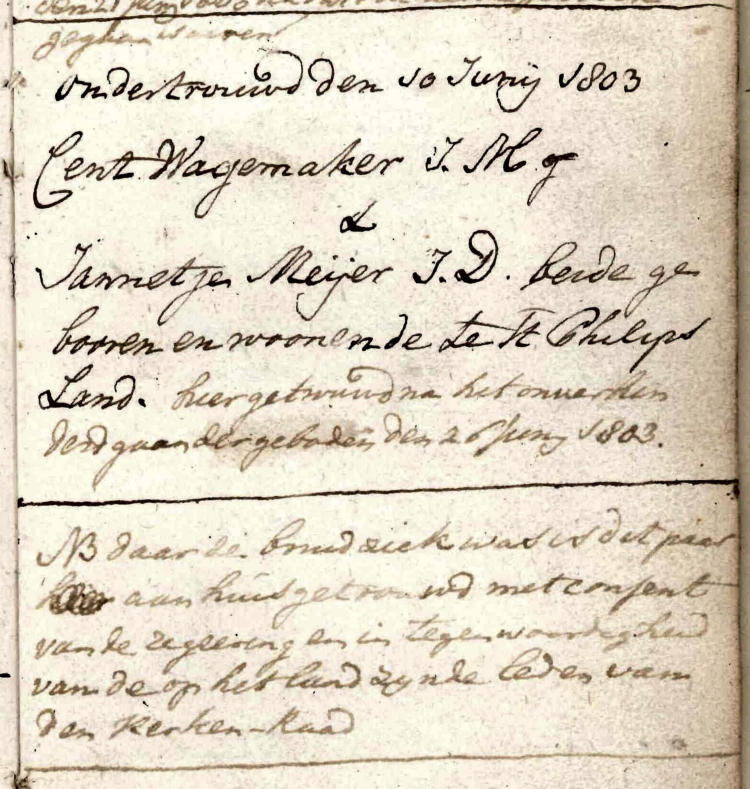 gegaan waaren
ondertrouwd den 10 Junij 1803
Cent Wagemaker J. M
&
Jannetje Meijer J. D. beide ge
booren en woonende te St Philips
Land. hier getrouwd na het onverhin
derd gaan der geboden den 26 Junij 1803.
NB daar de bruid ziek was is dit paar
aan huis getrouwd met consent
van de regeering en in tegenwoordigheid
van de op het land zynde leden van
den Kerken-Raad